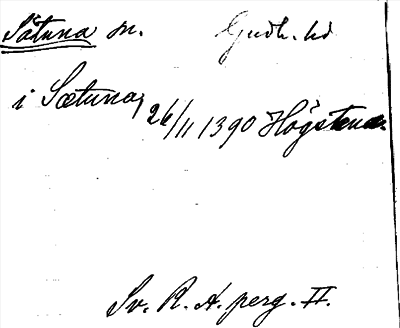 Såtuna sn. Gudh. hd
i Sætuna, 26/11 1390 Högstena.
Sv. R. A. perg. II.